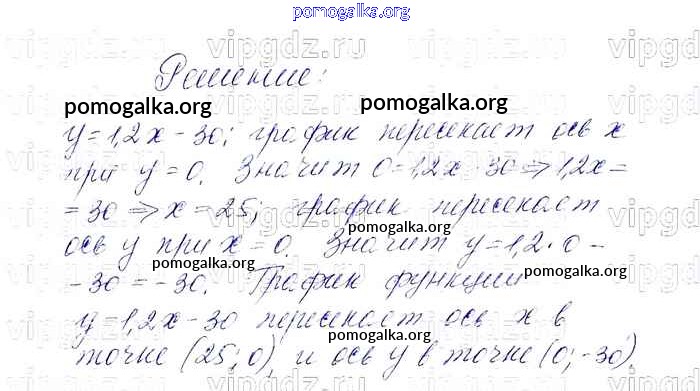 pomogalka.org
vipgdz.ru vipgdz.ru vipgdz.ru vipgd
Решение:
pomogalka.org pomogalka.org
y=1,2x-30; график пересекает ось x
при y=0. Значит 0=1,2x-30⇒1,2x=
=30⇒x=25; график пересекает
ось y при x=0. Значит y=1,2·0-
pomogalka.org pomogalka.org
-30=-30. График функции
pomogalka.org
y=1,2x-30 пересекает ось x в
pomogalka.org
точке (25;0) и ось y в точке (0;-30).